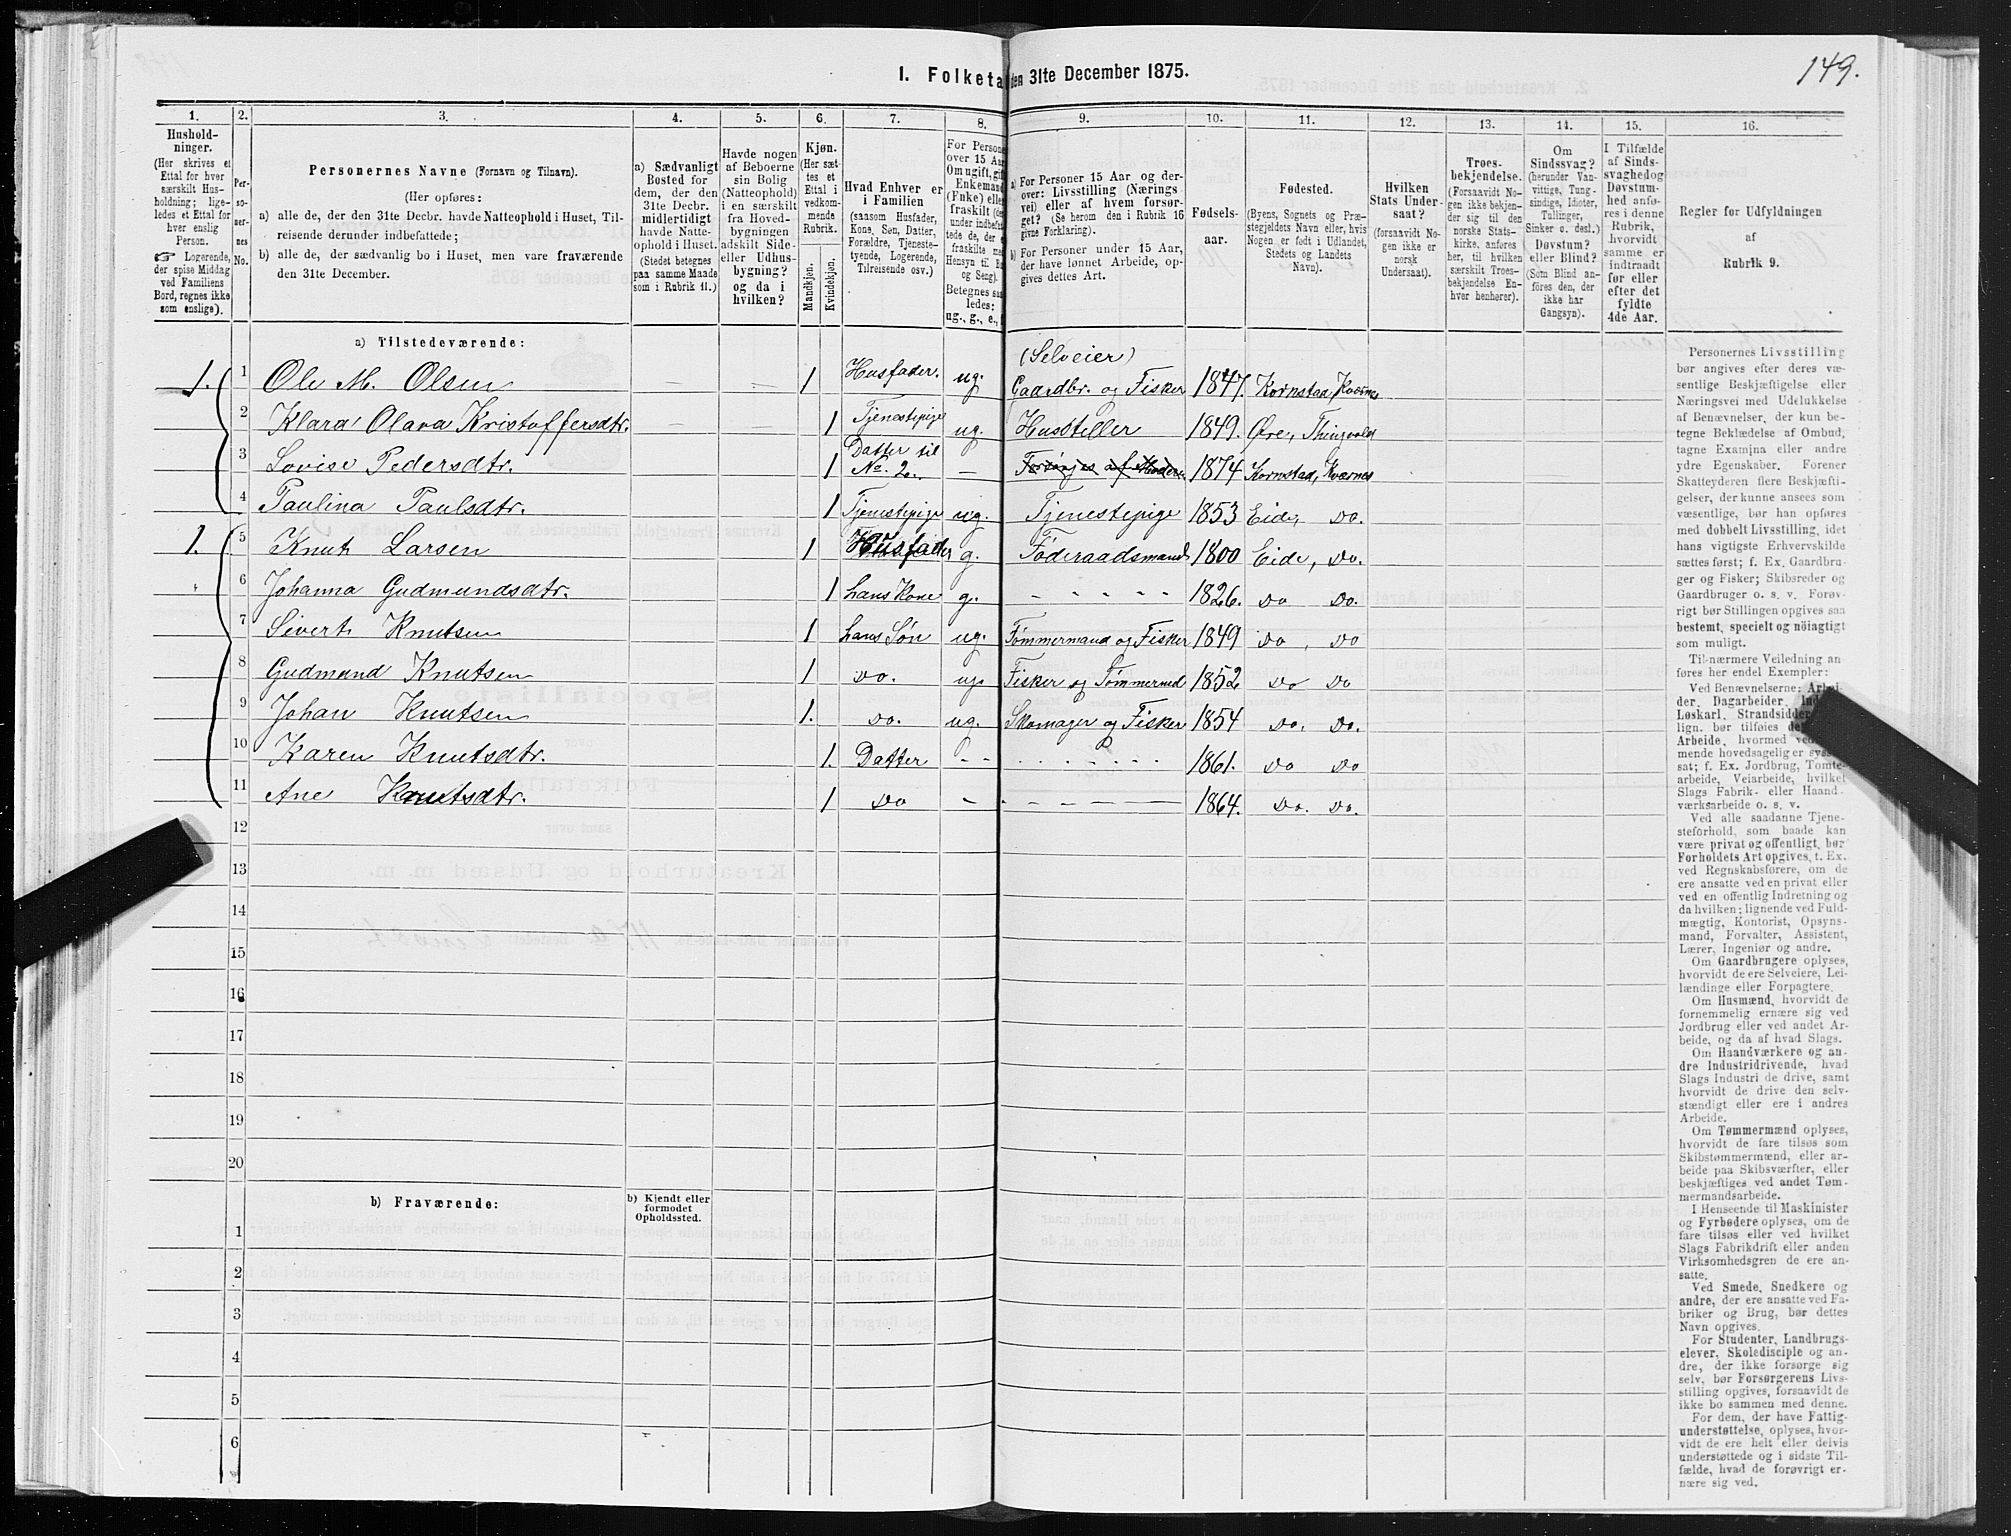 149.
1. Folketa den 31te December 1875.
1.
2.
3.
4.
5.
6.
7.
8.
9.
10.
11.
12.
13.
14.
15.
16.
Hushold-
ninger.
(Her skrives et
Ettal for hver
særskilt Hus-
holdning; lige-
ledes et Ettal for
hver enslig
Person.
Logerende,
der spise Middag
ved Familiens
Bord, regnes ikke
som enslige).
Per-
so-
ner-
nes
No.
Personernes Navne (Fornavn og Tilnavn).
(Her opføres:
a) alle de, der den 31te Decbr. havde Natteophold i Huset, Til-
reisende derunder indbefattede;
b) alle de, der sædvanlig bo i Huset, men vare fraværende
den 31te December.
a) Sædvanligt
Bosted for
dem, der den
31te Decbr.
midlertidigt
havde Natte-
ophold i Huset.
(Stedet betegnes
paa samme Maade
som i Rubrik 11.)
Havde nogen
af Beboerne
sin Bolig
(Natteophold)
i en særskilt
fra Hoved-
bygningen
adskilt Side-
eller Udhus-
bygning?
og da i
hvilken?
Kjøn.
(Her sæt-
tes et
Ettal i
vedkom-
mende
Rubrik.
Mandkjøn.
Kvindekjøn.
Hvad Enhver er
i Familien
(saasom Husfader,
Kone, Søn, Datter,
Forældre, Tjeneste-
tyende, Logerende,
Tilreisende osv.)
For Persone
over 15 Aar
Om ugift, gif
Enkemand
(Enke) elle
fraskilt (de
under indbefat
tede de, der e
fraskilte me
Hensyn til Bo
og Seng).
Betegnes saa
ledes:
ug., g., e.,
a) For Personer 15 Aar og der-
over: Livsstilling (Nærings
vei) eller af hvem forsør-
get? (Se herom den i Rubrik 16
givne Forklaring).
b) For Personer under 15 Aar,
der have lønnet Arbeide, op-
gives dettes Art.
Fødsels-
aar.
Fødested.
(Byens, Sognets og Præ-
stegjeldets Navn eller, hvis
Nogen er født i Udlandet,
Stedets og Landets
Navn).
Hvilken
Stats Under-
saat?
(forsaavidt No-
gen ikke er
norsk
Undersaat).
Troes-
bekjendelse.
(Forsaavidt No-
gen ikke bekjen-
der sig til den
norske Stats-
kirke, anføres
her, til hvilken
særskilt Troes-
bekjendelse En-
hver henhører).
Om
Sindssvag?
(herunder Van-
vittige, Tung-
sindige, Idioter,
Tullinger,
Sinker o. desl.)
Døvstum?
eller Blind?
(Som Blind an-
føres den, der
ikke har
Gangsyn).
I Tilfælde
af Sinds-
svaghed og
Døvstum-
hed anfø-
res i denne
Rubrik,
hvorvidt
samme er
indtraadt
før eller
efter det
fyldte
4de Aar.
Regler for Udfyldningen
af
Rubrik 9.
a) Tilstedeværende:
(Selveier)
1. 1 Ole M. Olsen — — 1 Husfader. ug. Gaardbr. og Fisker 1847. Kornstad, Kværnes
2 Klara Olava Kristoffersdtr. — — 1 Tjenestepige ug. Hussteller 1849. Øre, Thingvold
3 Lovise Pedersdtr. 1 Datter til No. 2. — Forsørges af Moderen 1874 Kornstad, Kværnes
4 Paulina Paulsdtr. 1 Tjenestepige ug. Tjenestepige 1853 Eide, Do.
1. 5 Knut Larsen 1 Husfader g. Føderaadsmand 1800 Eide, Do.
6 Johanna Gudmundsdtr. 1 hans Kone g. - - - - - 1826. Do Do.
7 Sivert Knutsen 1 hans Søn ug. Tømmermand og Fisker 1849 Do, Do
8 Gudmund Knutsen 1 Do. ug. Fisker og Tømmermd 1852 Do Do
9 Johan Knutsen 1. Do. ug. Skomager og Fisker 1854 Do. Do.
10 Karen Knutsdtr. 1. Datter - - - - - - 1861. Do Do
11 Ane Knutsdtr. 1 Do - - - - - - 1864. Do. Do.
12
13
14
15
16
17
18
19
20
b) Fraværende:
b) Kjendt eller
formodet
Opholdssted.
1
2
3
4
5
6
Personernes Livsstilling
bør angives efter deres væ-
sentlige Beskjæftigelse eller
Næringsvei med Udelukkelse
af Benævnelser, der kun be-
tegne Beklædelse af Ombud,
tagne Examina eller andre
ydre Egenskaber. Forener
Skatteyderen flere Beskjæfti-
gelser, der kunne ansees som
væsentlige, bør han opføres
med dobbelt Livsstilling, idet
hans vigtigste Erhvervskilde
sættes først; f. Ex. Gaardbru-
ger og Fisker; Skibsreder og
Gaardbruger o. s. v. Forøv-
rigt bør Stillingen opgives saa
bestemt, specielt og nöiagtigt
som muligt.
Til nærmere Veiledning an-
føres her endel Exempler:
Ved Benævnelserne: Arbei-
der, Dagarbeider, Ind
Løskarl, Strandsidder
lign. bør tilføies de
Arbeide, hvormed ved
mende hovedsagelig er syss
sat; f. Ex. Jordbrug, Tomte-
arbeide, Veiarbeide, hvilket
Slags Fabrik- eller Haand-
værksarbeide o. s. v.
Ved alle saadanne Tjene-
steforhold, som baade kan
være privat og offentligt, bør
Forholdets Art opgives, t. Ex.
ved Regnskabsførere, om de
ere ansatte ved en privat eller
ved en offentlig Indretning og
da hvilken; lignende ved Fuld-
mægtig, Kontorist, Opsyns-
mand, Forvalter, Assistent,
Lærer, Ingeniør og andre.
Om Gaardbrugere oplyses,
hvorvidt de ere Selveiere, Lei-
lændinge eller Forpagtere.
Om Husmænd, hvorvidt de
fornemmelig ernære sig ved
Jordbrug eller ved andet Ar-
beide, og da af hvad Slags.
Om Haandværkere og an-
dre Industridrivende, hvad
Slags Industri de drive, samt
hvorvidt de drive den selv-
stændigt eller ere i andres
Arbeide.
Om Tømmermænd oplyses,
hvorvidt de fare tilsøs som
Skibstømmermænd, eller ar-
beide paa Skibsværfter, eller
beskjæftiges ved andet Tøm-
mermandsarbeide.
I Henseende til Maskinister
og Fyrbødere oplyses, om de
fare tilsøs eller ved hvilket
Slags Fabrikdrift eller anden
Virksomhedsgren de ere an-
satte.
Ved Smede, Snedkere og
andre, der ere ansatte ved Fa-
briker og Brug, bør dettes
Navn opgives.
For Studenter, Landbrugs-
elever, Skoledisciple og an-
dre, der ikke forsørge sig
selv, bør Forsørgerens Livs-
stilling opgives, forsaavidt de
ikke bo sammen med denne.
For dem, der have Fattig-
understøttelse, oplyses, hvor-
vidt de ere helt eller delvis
understøttede og i sidste Til-
fælde, hvad de forøvrigt er-
nære sig ved.